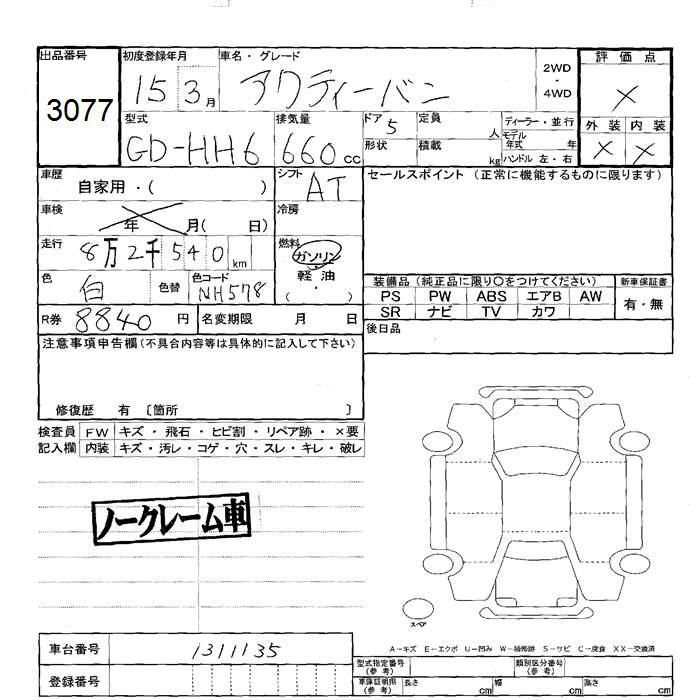 出品番号 初度登録年月 車名・グレード 2WD・4WD 評価点
3077 15 3月 アクティーバン ×
型式 排気量 ドア 5 定員 人 ディーラー・並行 外装 内装
GD-HH6 660cc 形状 積載 kg モデル年式 年 ハンドル 左・右 × ×
車歴 自家用・( ) シフト AT セールスポイント (正常に機能するものに限ります)
車検 年 月( 日) 冷房
走行 8万2千540km 燃料 ガソリン 軽油 ・( )
色 白 色替 色コード NH578 装備品 (純正品に限り○をつけてください) 新車保証書
PS PW ABS エアB AW 有・無
R券 8840円 名変期限 月 日 SR ナビ TV カワ
後日品
注意事項申告欄(不具合内容等は具体的に記入して下さい)
修復歴 有 〔箇所 〕
検査員 FW キズ・飛石・ヒビ割・リペア跡・×要
記入欄 内装 キズ・汚レ・コゲ・穴・スレ・キレ・破レ
ノークレーム車
スペア
A-キズ E-エクボ U-凹み W-補修跡 S-サビ C-腐食 XX-交換済
車台番号 1311135 型式指定番号(参考) 類別区分番号(参考)
登録番号 車庫証明用(参考) 長さ cm 幅 cm 高さ cm